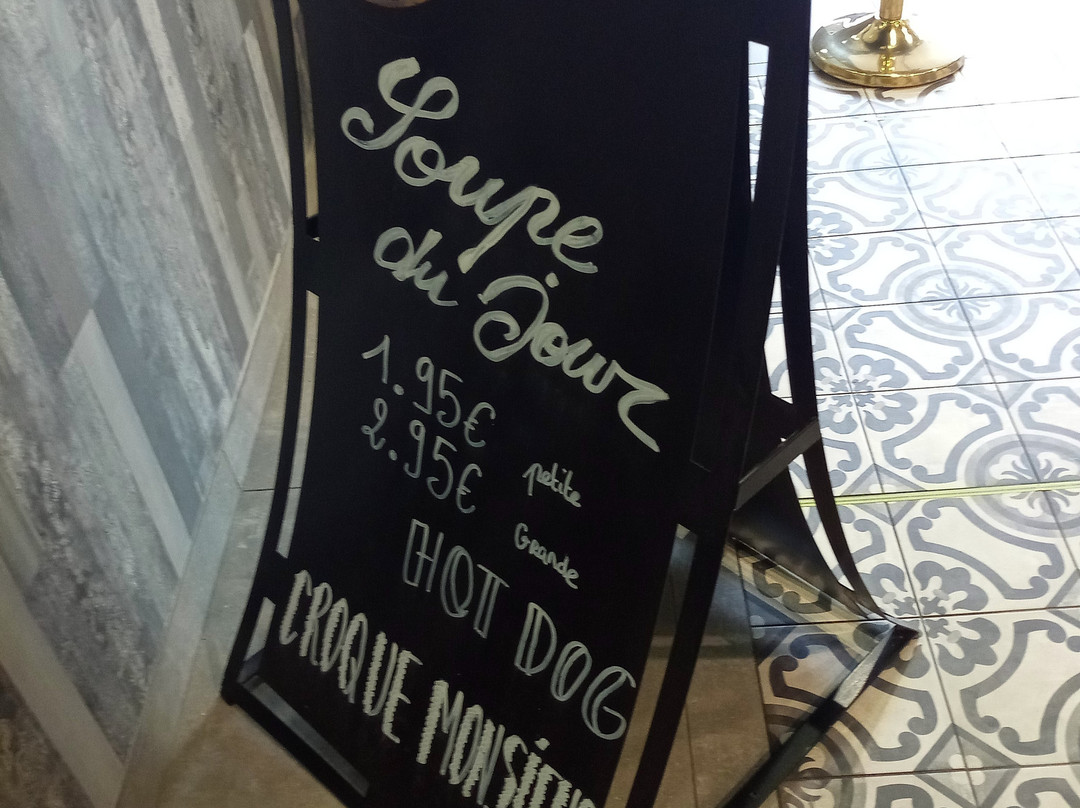 Soupe
du Jour
1.95€ petite
2.95€ Grande
HOT DOG
CROQUE MONSIEUR